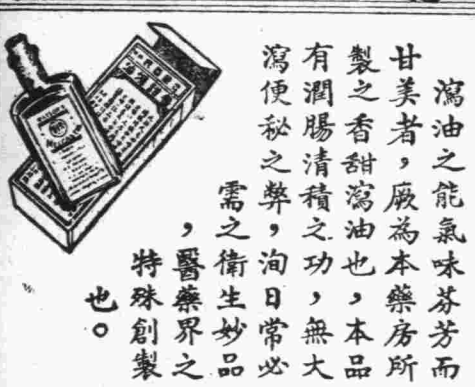 瀉油之能氣味芬芳而
甘美者,厥為本藥房所
製之香甜瀉油也,本品
有潤腸清積之功,無大
瀉便秘之弊,洵日常必
需之衛生妙品
,醫藥界之
特殊創製
也。